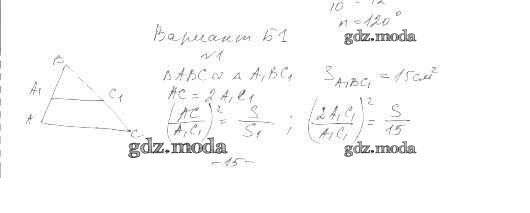 10 12
n = 120°
Вариант Б1
gdz.moda
N1
B
△ABC ∾ △A₁BC₁ S_A₁BC₁ = 15 см²
A₁ C₁
AC = 2A₁C₁
A C
(AC/A₁C₁)² = S/S₁ ; (2A₁C₁/A₁C₁)² = S/15
gdz.moda gdz.moda
- 15 -